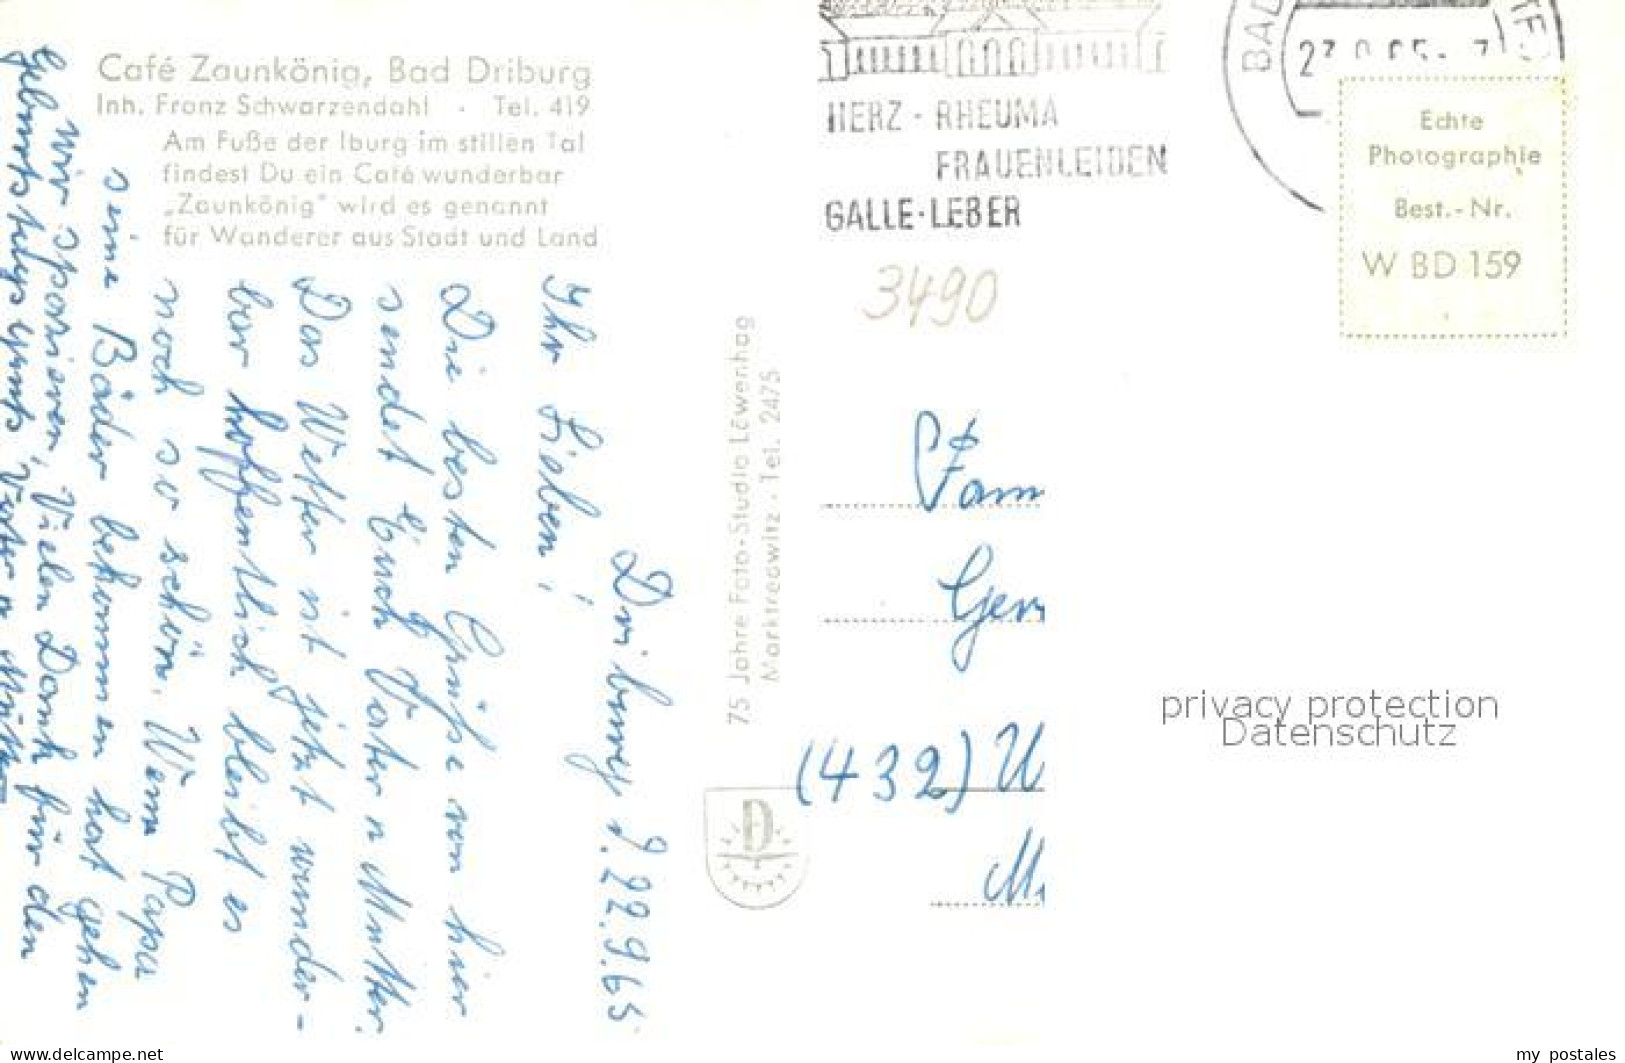 Café Zaunkönig, Bad Driburg
Inh. Franz Schwarzendahl · Tel. 419
Am Fuße der Iburg im stillen Tal
findest Du ein Café wunderbar
„Zaunkönig" wird es genannt
für Wanderer aus Stadt und Land
Driburg, d. 22.9.65
Ihr Lieben!
Die besten Grüße von hier
sendet Euch Vater u Mutter.
Das Wetter ist jetzt wunder-
bar hoffentlich bleibt es
noch so schön. Wenn Papa
seine Bäder bekommen hat gehen
wir spazieren, Vielen Dank für den
Geburtstagsgruß Vater u Mutter
75 Jahre Foto-Studio Löwenhag
Marktredwitz · Tel. 2475
D
BAD
HERZ - RHEUMA
FRAUENLEIDEN
GALLE-LEBER
3490
Echte
Photographie
Best.-Nr.
W BD 159
Fam
Ger
(432) U
privacy protection
Datenschutz
www.delcampe.net
my_postales